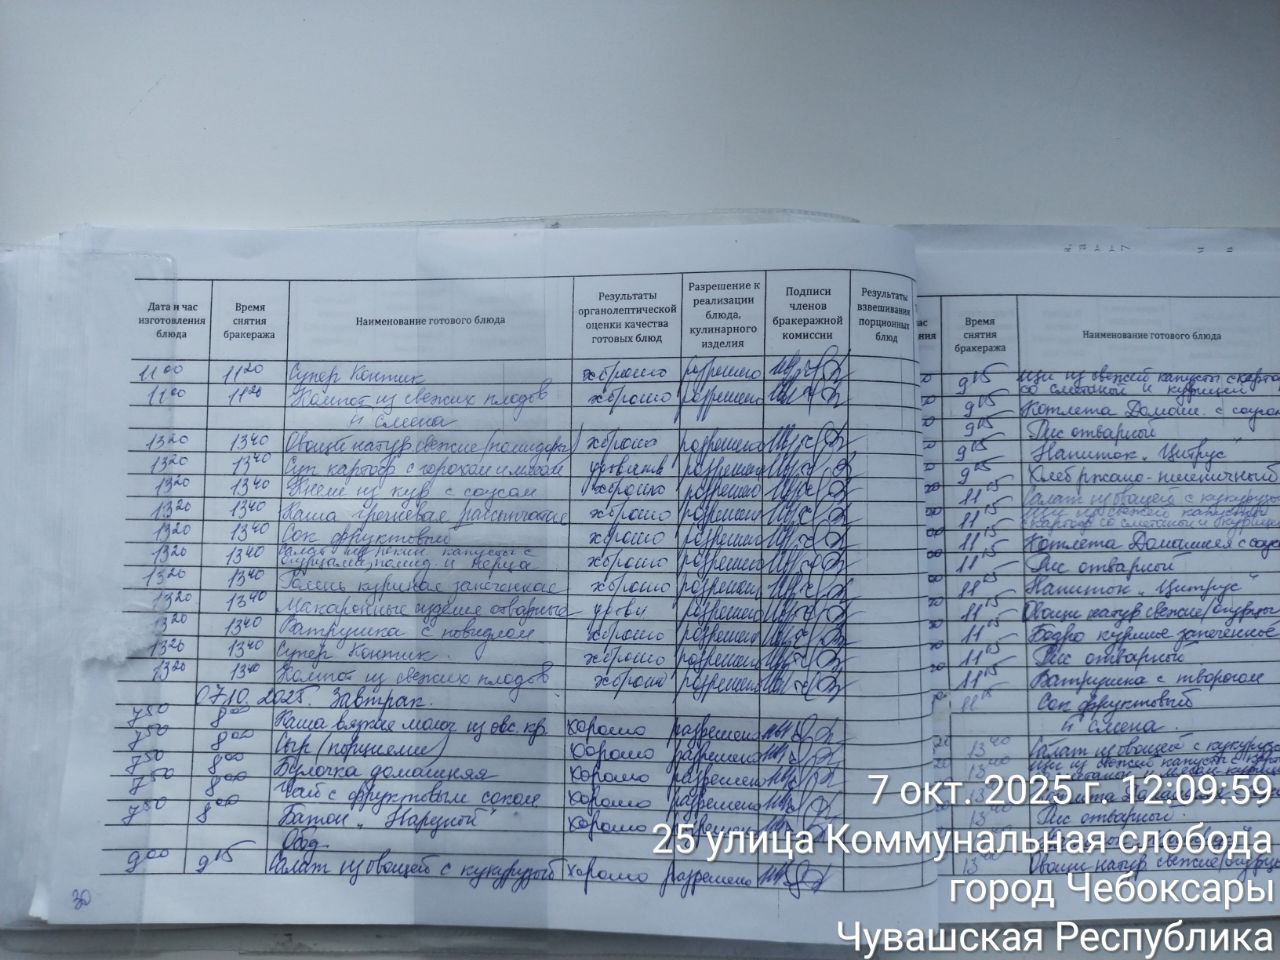 Дата и час изготовления блюда | Время снятия бракеража | Наименование готового блюда | Результаты органолептической оценки качества готовых блюд | Разрешение к реализации блюда, кулинарного изделия | Подписи членов бракеражной комиссии | Результаты взвешивания порционных блюд
11 00 | 11 20 | Супер Контик | хорошо | разрешено
11 00 | 11 20 | Компот из свежих плодов | хорошо | разрешено
II смена
13 20 | 13 40 | Овощи натур свежие (помидоры) | хорошо | разрешено
13 20 | 13 40 | Суп картоф с горохом и мясом | разрешено
13 20 | 13 40 | из кур с соусом | хорошо | разрешено
13 20 | 13 40 | Каша гречневая рассыпчатая | хорошо | разрешено
13 20 | 13 40 | Сок фруктовый | хорошо | разрешено
13 20 | 13 40 | Салат из пекин. капусты с огурцами, помид и перца | хорошо | разрешено
13 20 | 13 40 | Голень куриная запеченная | хорошо | разрешено
13 20 | 13 40 | Макаронные изделия отварные | разрешено
13 20 | 13 40 | Ватрушка с повидлом | хорошо | разрешено
13 20 | 13 40 | Супер Контик | хорошо | разрешено
13 20 | 13 40 | Компот из свежих плодов | хорошо | разрешено
07.10.2025. Завтрак.
7 50 | 8 00 | Каша вязкая молоч из овс. кр. | хорошо | разрешено
7 50 | 8 00 | Сыр (порциями) | хорошо | разрешено
7 50 | 8 00 | Булочка домашняя | хорошо | разрешено
7 50 | 8 00 | Чай с фруктовым соком | хорошо | разрешено
7 50 | 8 00 | Батон "Нарезной" | хорошо | разрешено
Обед.
9 00 | 9 15 | Салат из овощей с кукурузой | хорошо | разрешено
30
Время снятия бракеража | Наименование готового блюда
9 15 | Щи из свежей капусты с картоф со сметаной и курицей
9 15 | Котлета Домашн. с соусом
9 15 | Рис отварной
9 15 | Напиток "Цитрус"
9 15 | Хлеб ржано-пшеничный
11 15 | Салат из овощей с кукурузой
11 15 | Щи из свежей капусты с картоф со сметаной и курицей
11 15 | Котлета Домашняя с соусом
11 15 | Рис отварной
11 15 | Напиток "Цитрус"
11 15 | Овощи натур свежие (огурцы
11 15 | Бедро куриное запеченное
11 15 | Рис отварной
11 15 | Ватрушка с творогом
11 15 | Сок фруктовый
II смена.
13 40 | Салат из овощей с кукурузой
13 40 | Щи из свежей капусты с картоф
13 40
13 40 | Рис отварной
13 40 | Овощи натур свежие (огурцы
7 окт. 2025 г. 12:09:59
25 улица Коммунальная слобода
город Чебоксары
Чувашская Республика